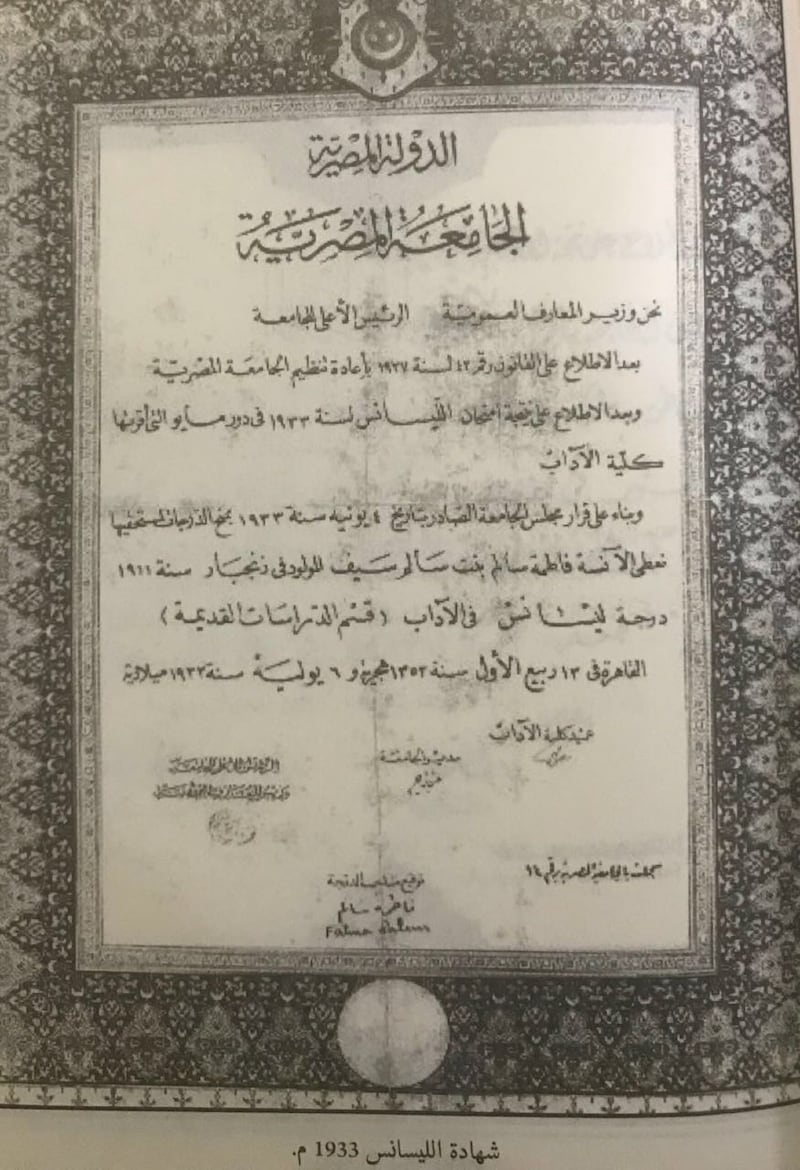 الدولة المصرية
الجامعة المصرية
نحن وزير المعارف العمومية الرئيس الأعلى للجامعة
بعد الاطلاع على القانون رقم ٤٢ لسنة ١٩٢٧ بإعادة تنظيم الجامعة المصرية
وبعد الاطلاع على نتيجة امتحان الليسانس لسنة ١٩٣٣ فى دور مايو التى أقرتها
كلية الآداب
وبناء على قرار مجلس الجامعة الصادر بتاريخ ٤ يونيه سنة ١٩٣٣ بمنح الدرجات لمستحقيها
نعطى الآنسة فاطمة سالم بنت سالم سيف المولود فى زنجبار سنة ١٩١١
درجة ليسانس فى الآداب (قسم الدراسات القديمة)
القاهرة فى ١٣ ربيع الأول سنة ١٣٥٢ هجرية و ٦ يولية سنة ١٩٣٣ ميلادية
عميد كلية الآداب
مدير الجامعة
الرئيس الأعلى للجامعة
سجلت بالجامعة المصرية رقم ١٤
توقيع صاحب الدرجة
فاطمة سالم
Fatma Salem
شهادة الليسانس 1933 م.